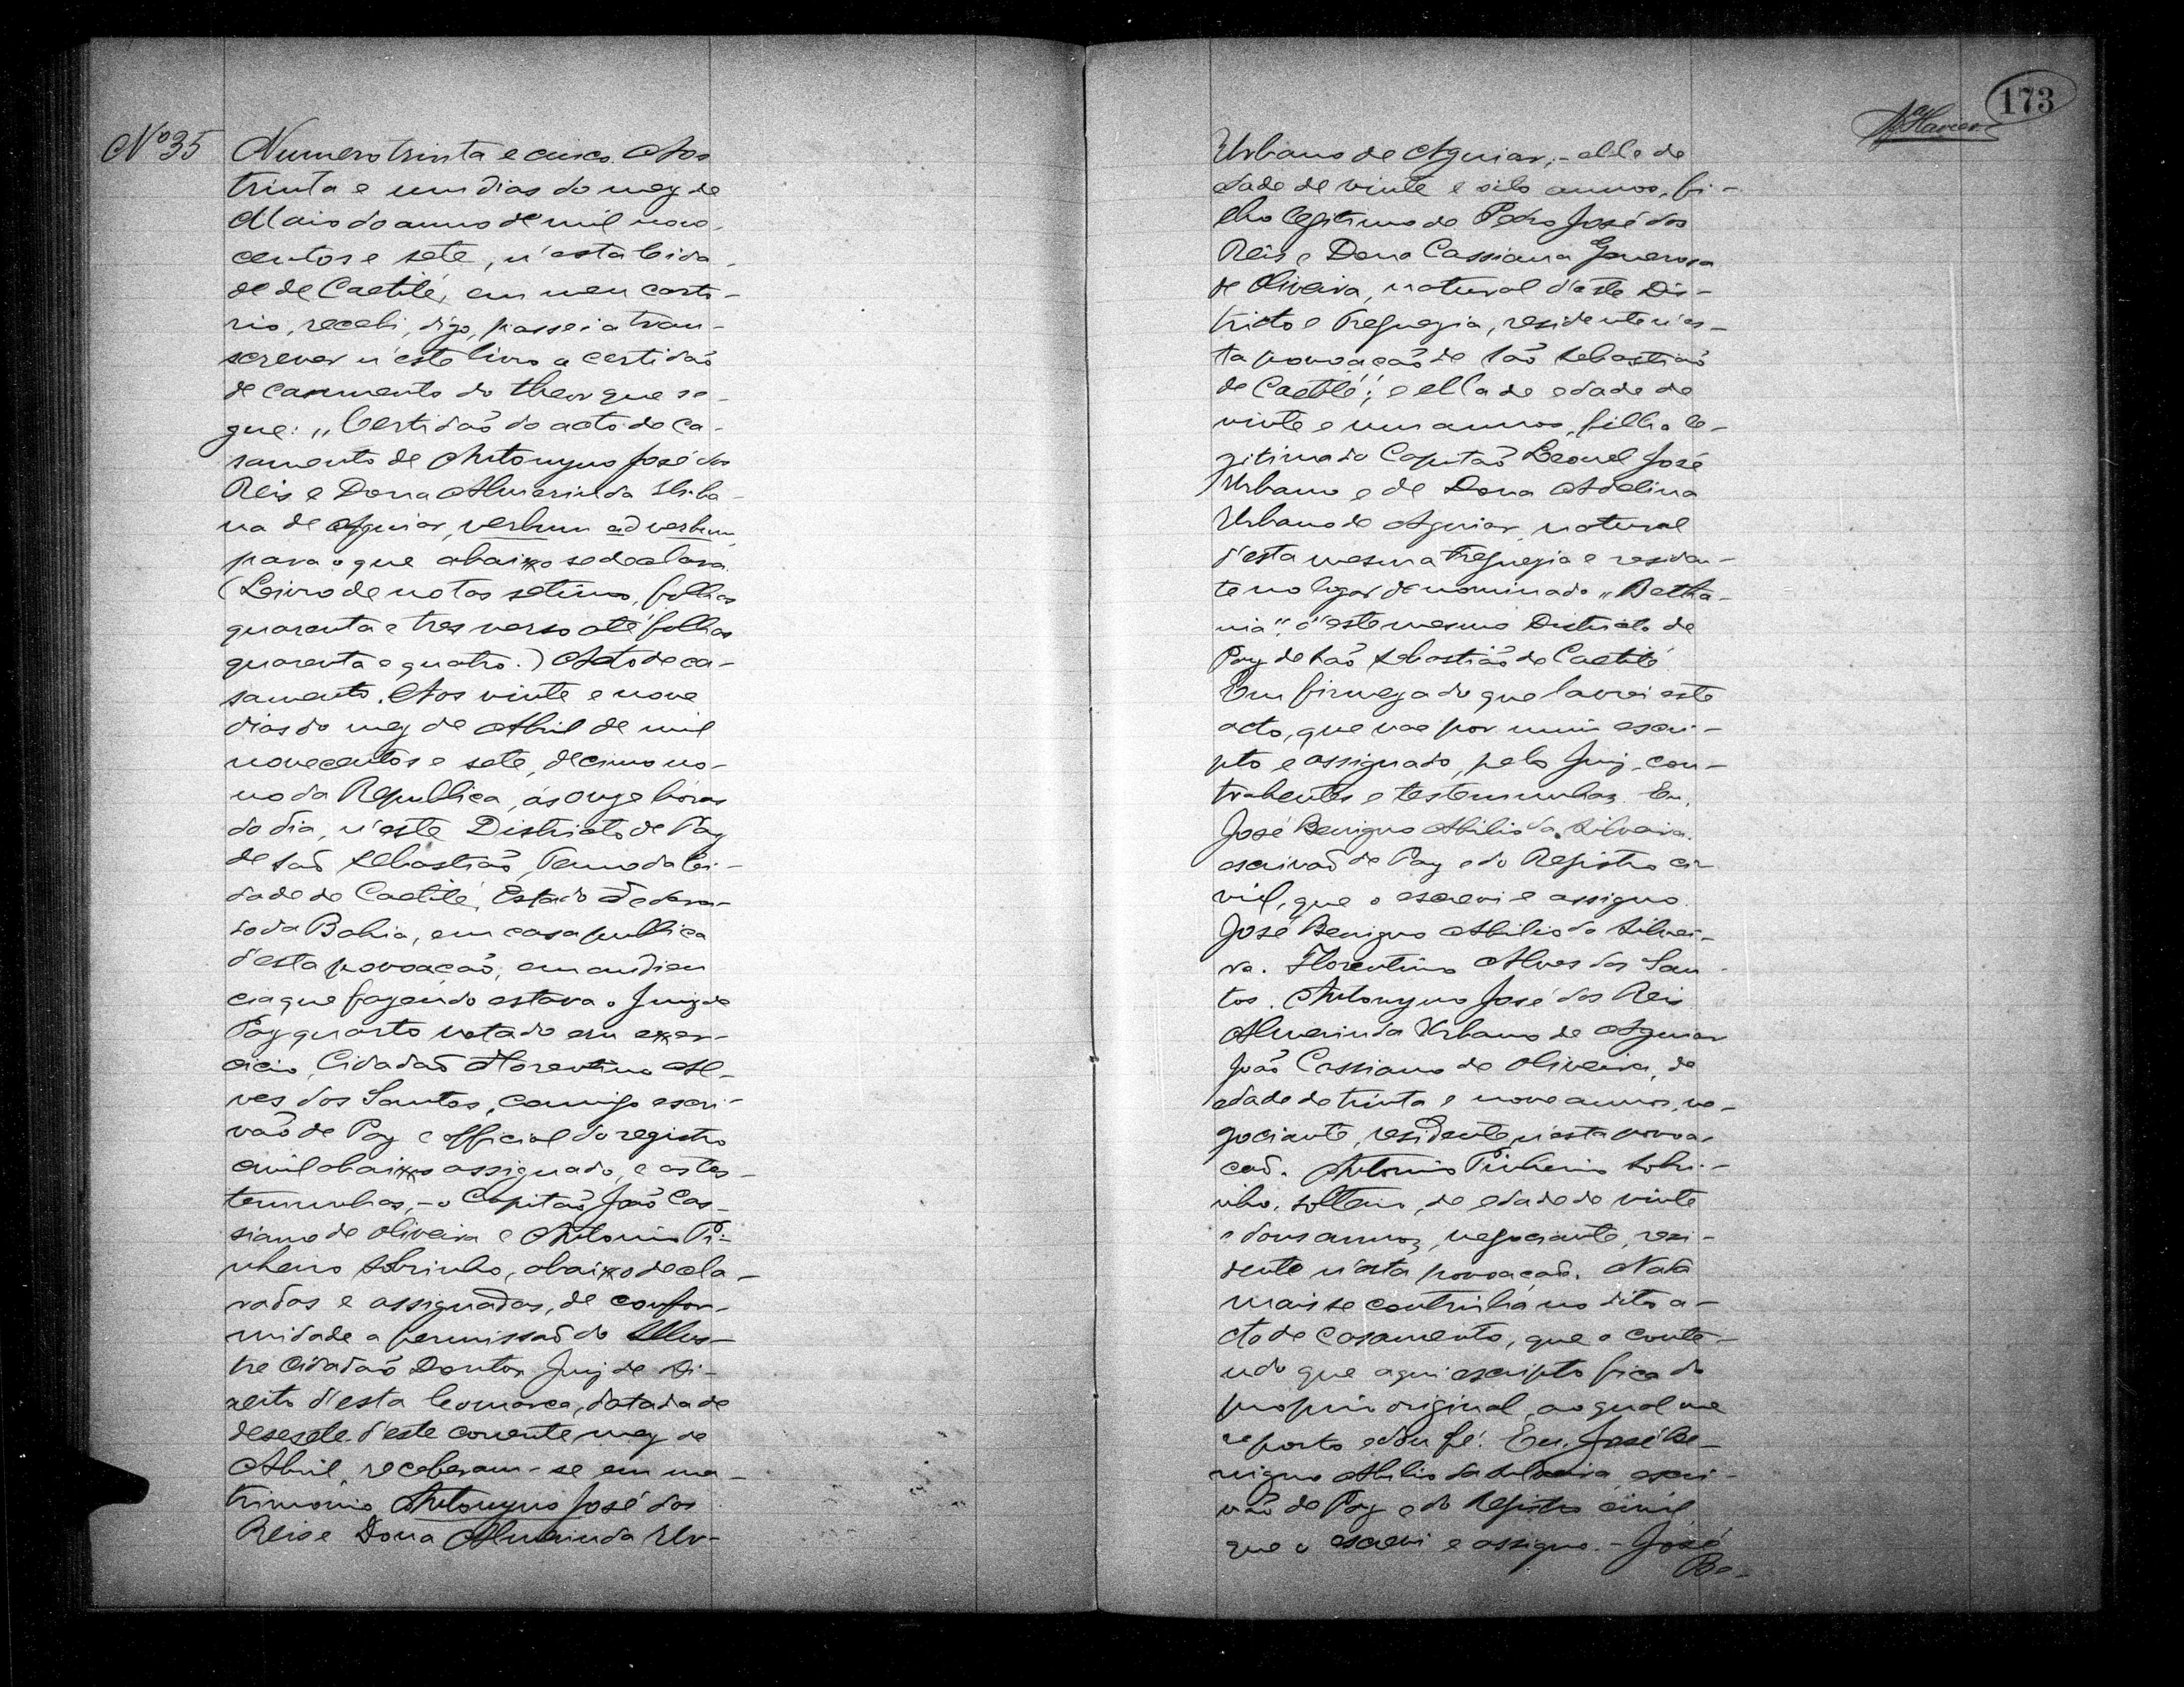 Nº 35
Numero trinta e cinco. Aos
trinta e um dias do mez de
Maio do anno de mil nove-
centos e sete, n'esta Cida-
de de Caetité, em meu carto-
rio, recebi, digo, passei a tran-
screver n'este livro a certidão
de casamento do theor que se-
gue: „Certidão do acto de ca-
samento de Antonyno José dos
Reis e Dona Almerinda Urba-
na de Aguiar, verbum ad verbum,
para o que abaixo se declara.
(Livro de notas setimo, folhas
quarenta e tres verso até folhas
quarenta e quatro.) Acto de ca-
samento. Aos vinte e nove
dias do mez de Abril de mil
novecentos e sete, decimo no-
no da Republica, ás onze horas
do dia, n'este Districto de Paz
de São Sebastião, Termo da Ci-
dade de Caetité, Estado Federa-
do da Bahia, em casa publica
d'esta povoação, em audien
cia que fazendo estava o Juiz de
Paz quarto votado em exer-
cicio, Cidadão Florentino Al-
ves dos Santos, comigo escri-
vão de Paz e official do registro
civil abaixo assignado, e as tes-
temunhas, - o Capitão João Cas-
siano de Oliveira e Antonio Pi-
nheiro Sobrinho, abaixo decla-
rados e assignados, de confor-
midade a permissão do Illus-
tre Cidadão Doutor Juiz de Di-
reito d'esta Comarca, datada de
desesete d'este corrente mez de
Abril, receberam-se em ma-
trimonio Antonyno José dos
Reis e Dona Almerinda Ur-
173
Urbano de Aguiar, - elle de
edade de vinte e oito annos, fi-
lho legitimo de Pedro José dos
Reis e Dona Cassiana Generosa
de Oliveira, natural d'este Dis-
tricto e Freguezia, residente n'es-
ta povoação de São Sebastião
de Caetité; e ella de edade de
vinte e um annos, filha le-
gitima do Capitão Leonel José
Urbano e de Dona Adelina
Urbano de Aguiar, natural
d'esta mesma Freguezia e residen-
te no logar denominado „Betha-
nia", d'este mesmo Districto de
Paz de São Sebastião de Caetité.
Em firmeza do que lavrei este
acto, que vae por mim escri-
pto e assignado, pelo Juiz, con-
trahentes e testemunhas. Eu,
José Benigno Abilio da Silveira.
escrivão de Paz e do Registro ci-
vil, que o escrevi e assigno.
José Benigno Abilio da Silvei-
ra. Florentino Alves dos San-
tos. Antonyno José dos Reis
Almerinda Urbano de Aguiar
João Cassiano de Oliveira, de
edade de trinta e nove annos, ne-
gociante, residente n'esta povoa-
ção. Antonio Pinheiro Sobri-
nho, solteiro, de edade de vinte
e dous annos, negociante, resi-
dente n'esta povoação. Nada
mais se continha no dito a-
cto de casamento, que o conte-
udo que aqui escripto fica do
proprio original, ao qual me
reporto e dou fé. Eu, José Be-
nigno Abilio da Silveira, escri-
vão de Paz e do Registro civil
que o escrevi e assigno. - José
Be-